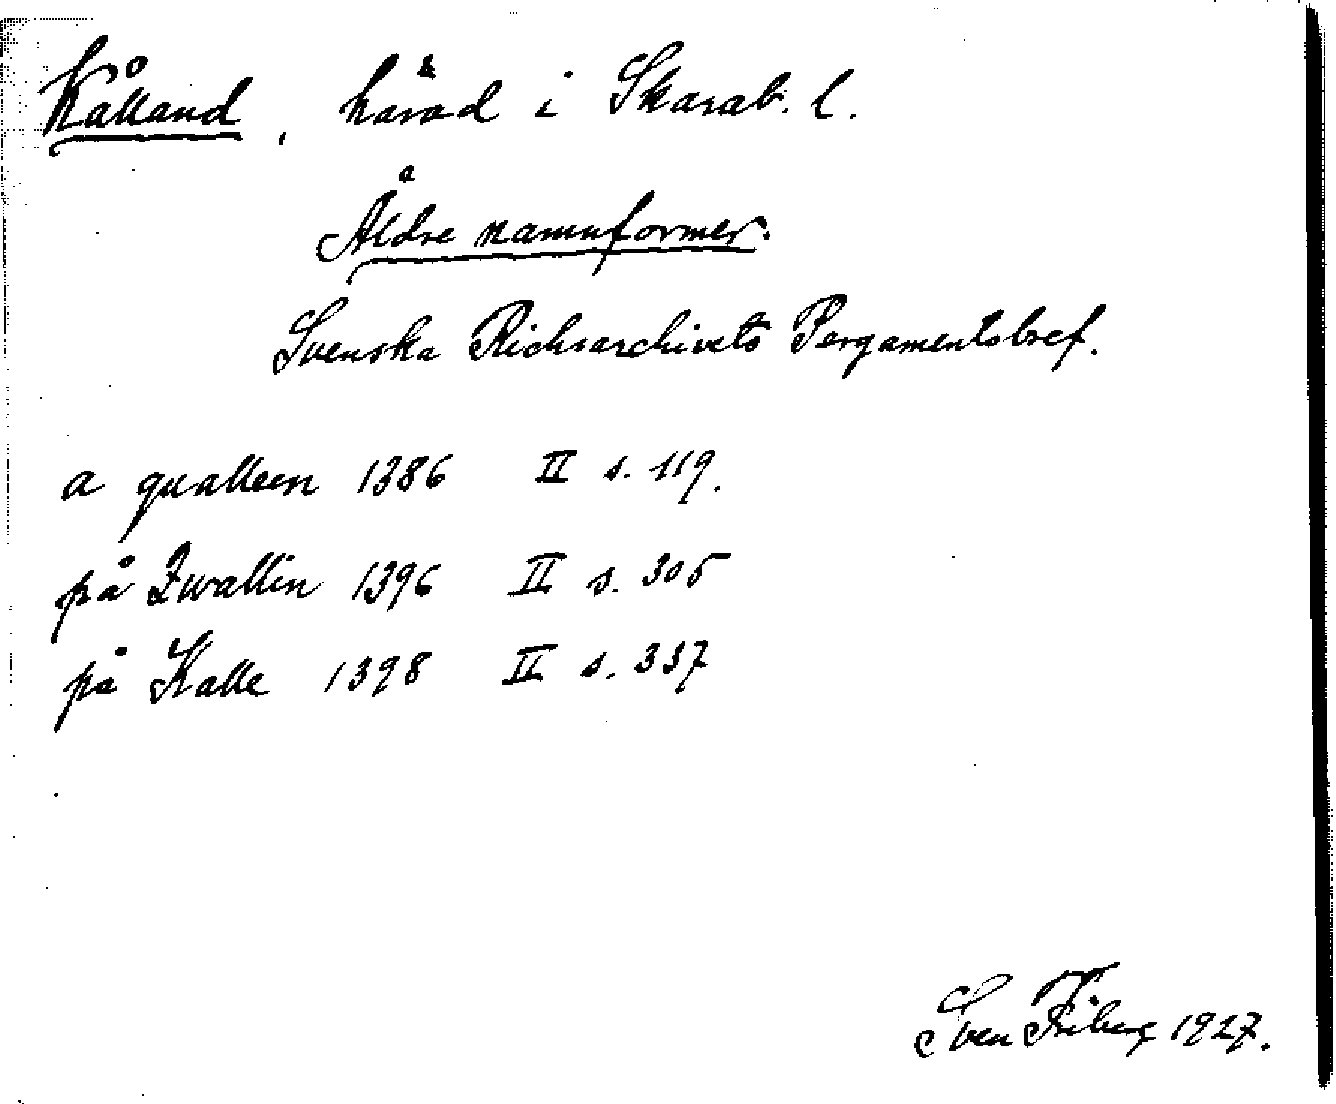 Kålland, härad i Skarab. l.
Äldre namnformer.
Svenska Richsarchivets Pergamentsbref.
a qualleen 1386 II s. 119.
på Quallin 1396 II s. 305
på Kalle 1398 II s. 337
Sven Friberg 1927.